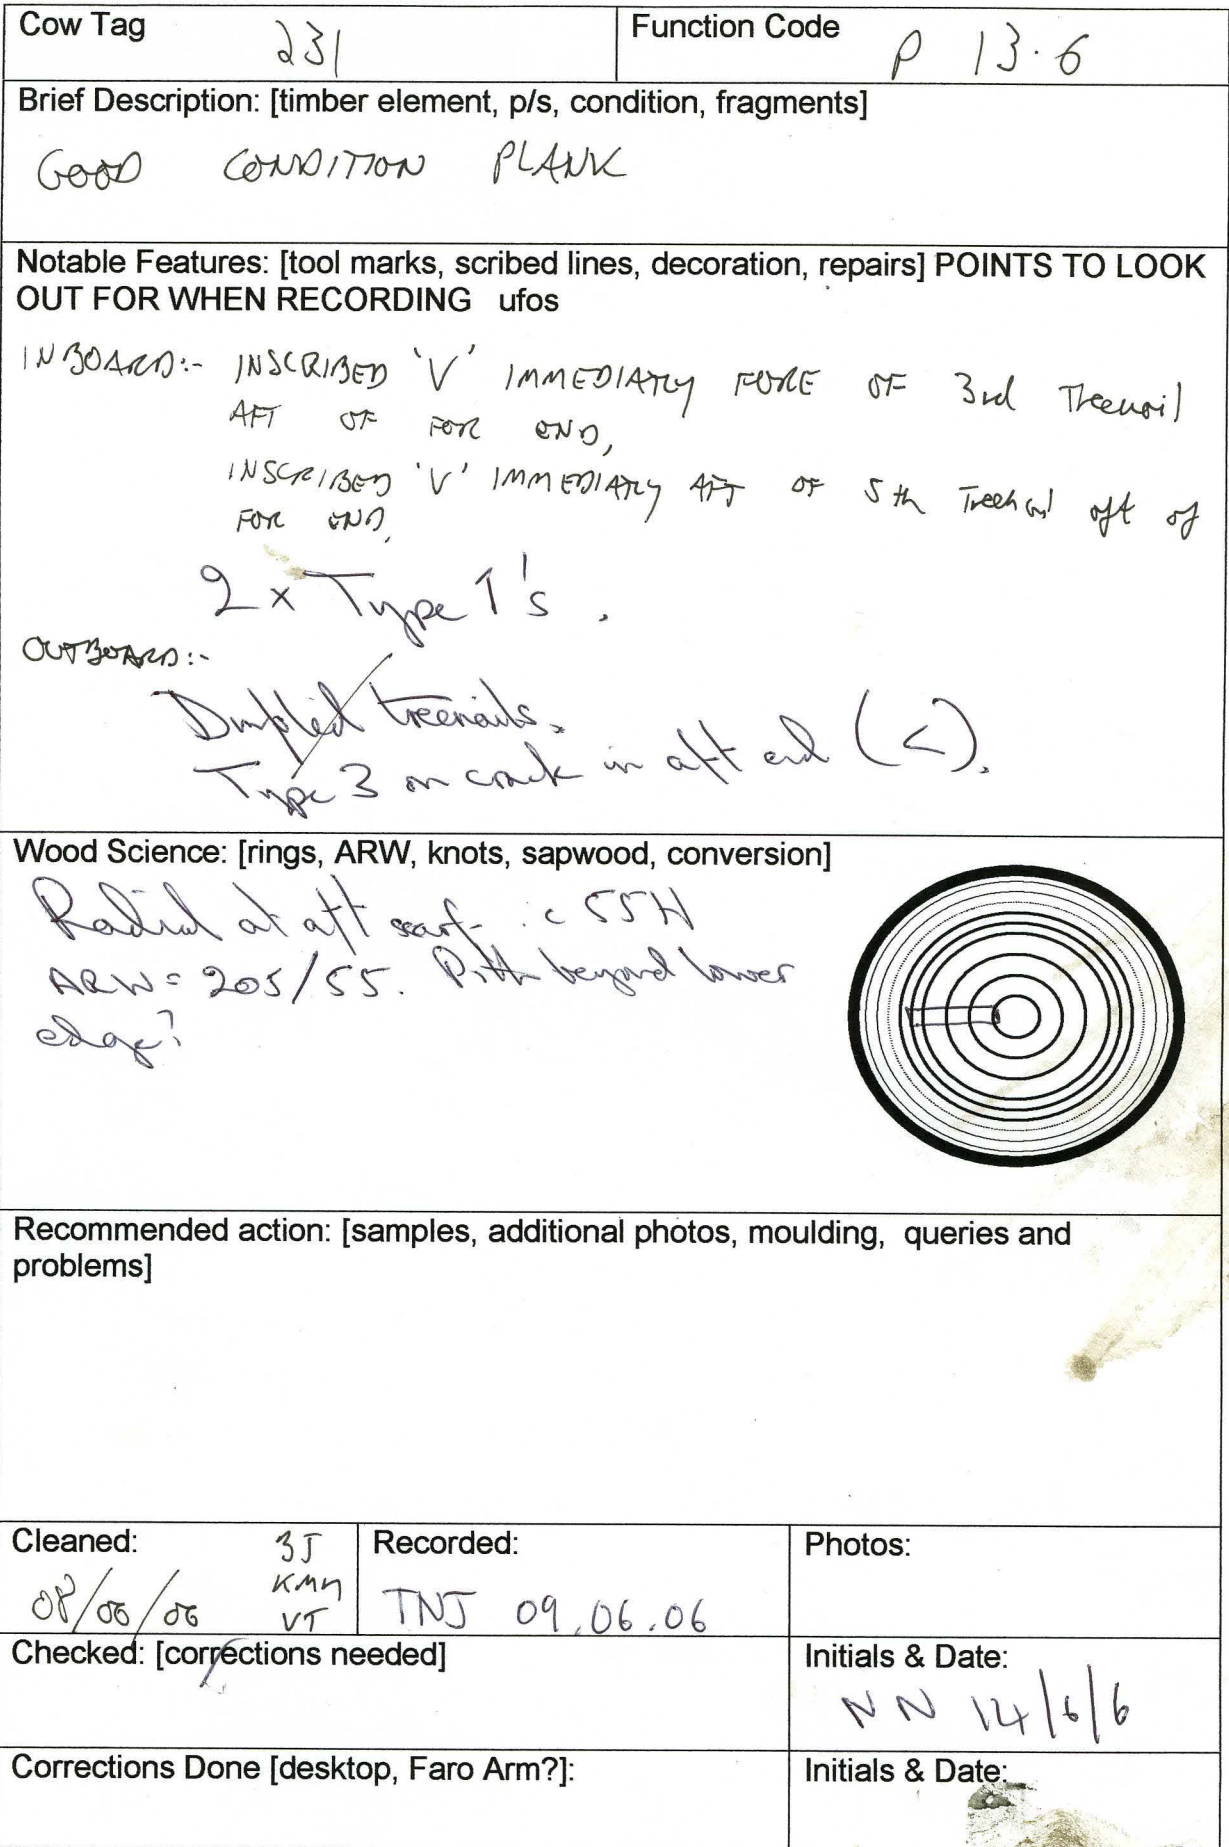 Cow Tag 231 Function Code P 13.6
Brief Description: [timber element, p/s, condition, fragments]
GOOD CONDITION PLANK
Notable Features: [tool marks, scribed lines, decoration, repairs] POINTS TO LOOK
OUT FOR WHEN RECORDING ufos
INBOARD:- INSCRIBED 'V' IMMEDIATLY FORE OF 3rd Treenail
AFT OF FOR END,
INSCRIBED 'V' IMMEDIATLY AFT OF 5th Treenail aft of
FOR END,
2 x Type 1's.
OUTBOARD:-
Dimpled treenails.
Type 3 on crack in aft end (<).
Wood Science: [rings, ARW, knots, sapwood, conversion]
Radial at aft scarf. c 55H
ARW = 205/55. Pith beyond lower
edge?
Recommended action: [samples, additional photos, moulding, queries and
problems]
Cleaned: Recorded: Photos:
KMN
08/06/06 VT TNJ 09.06.06
Checked: [corrections needed] Initials & Date:
NN 14/6/6
Corrections Done [desktop, Faro Arm?]: Initials & Date: